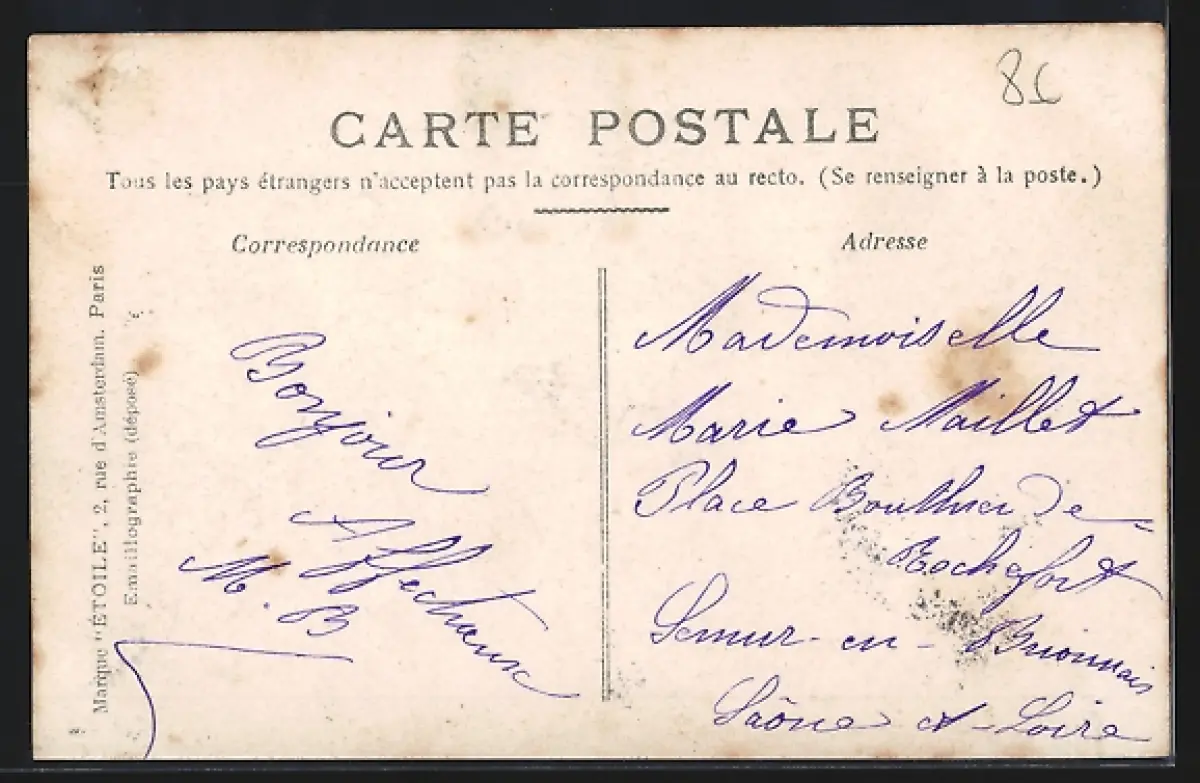 8c
CARTE POSTALE
Tous les pays étrangers n'acceptent pas la correspondance au recto. (Se renseigner à la poste.)
Correspondance
Adresse
Marque "ÉTOILE", 2, rue d'Amsterdam. Paris
Emaillographie (déposé)
Bonjour
Affectueux
M. B
Mademoiselle
Marie Maillet
Place Bouthier de
Rochefort
Semur-en-Brionnais
Saône et-Loire